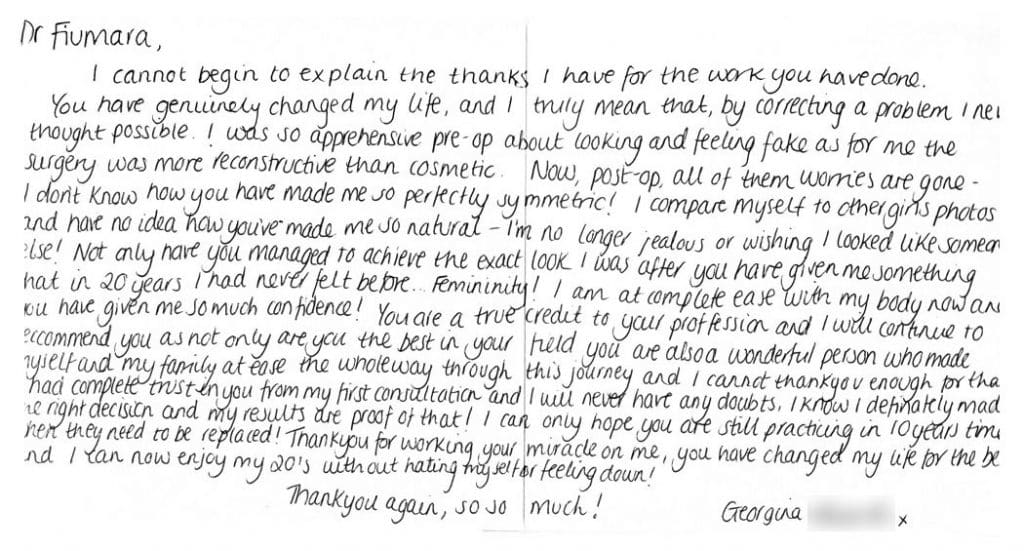 Dr Fiumara,
I cannot begin to explain the thanks I have for the work you have done.
You have genuinely changed my life, and I truly mean that, by correcting a problem I nev
thought possible. I was so apprehensive pre-op about looking and feeling fake as for me the
surgery was more reconstructive than cosmetic. Now, post-op, all of them worries are gone -
I don't know how you have made me so perfectly symmetric! I compare myself to other girls photos
and have no idea how you've made me so natural - I'm no longer jealous or wishing I looked like someon
else! Not only have you managed to achieve the exact look I was after you have given me something
that in 20 years I had never felt before... Femininity! I am at complete ease with my body now and
you have given me so much confidence! You are a true credit to your proffession and I will continue to
recommend you as not only are you the best in your field you are also a wonderful person who made
myself and my family at ease the whole way through this journey and I cannot thankyou enough for tha
had complete trust in you from my first consultation and I will never have any doubts, I know I definately mad
he right decision and my results are proof of that! I can only hope you are still practicing in 10 years time
when they need to be replaced! Thankyou for working your miracle on me, you have changed my life for the be
nd I can now enjoy my 20's without hating myself or feeling down!
Thankyou again, so so much!
Georgina x